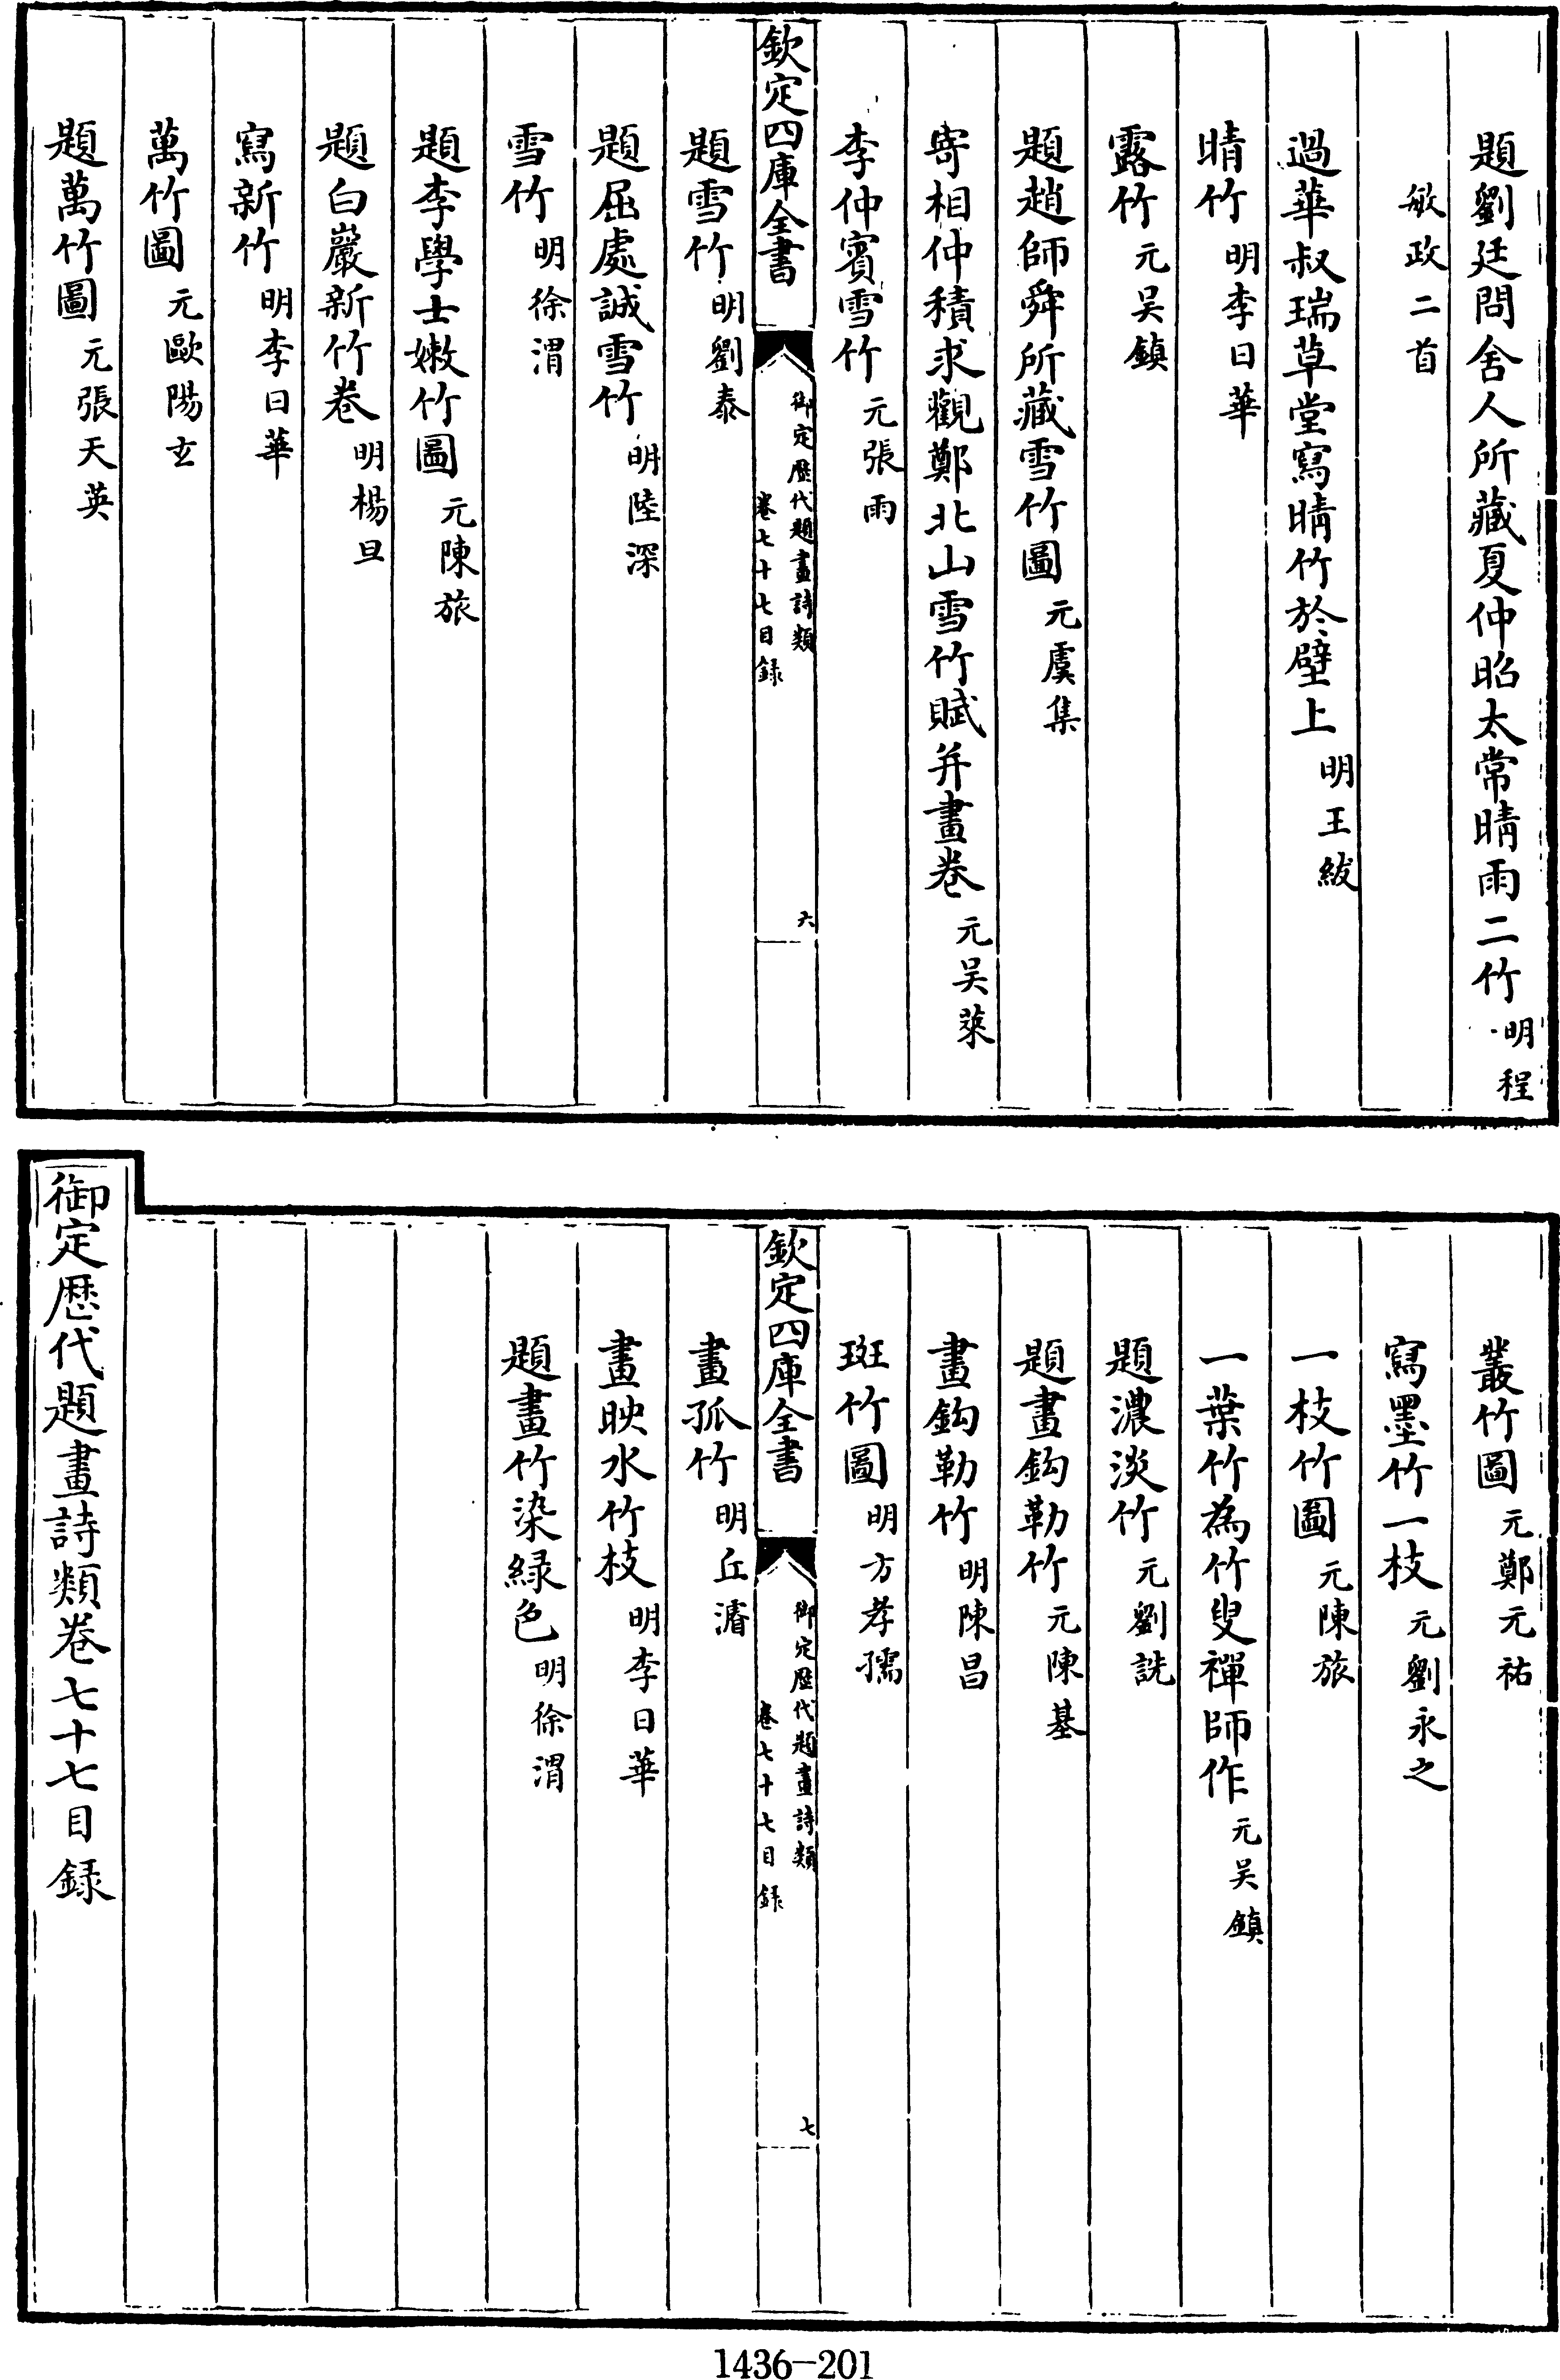 題劉廷問舍人所藏夏仲昭太常晴雨二竹明程
敏政二首
過華叔瑞草堂寫晴竹於壁上明王紱
晴竹明李日華
露竹元吴鎮
題趙師舜所藏雪竹圖元虞集
寄相仲積求觀鄭北山雪竹賦并畫卷元吴萊
李仲賓雪竹元張雨
欽定四庫全書
御定歷代題畫詩類
卷七十七目録
六
題雪竹明劉泰
題屈處誠雪竹明陸深
雪竹明徐渭
題李學士嫩竹圖元陳旅
題白巖新竹卷明楊旦
寫新竹明李日華
萬竹圖元歐陽玄
題萬竹圖元張天英
叢竹圖元鄭元祐
寫墨竹一枝元劉永之
一枝竹圖元陳旅
一葉竹為竹叟禪師作元吴鎮
題濃淡竹元劉詵
題畫鈎勒竹元陳基
畫鈎勒竹明陳昌
斑竹圖明方孝孺
欽定四庫全書
御定歷代題畫詩類
卷七十七目録
七
畫孤竹明丘濬
畫映水竹枝明李日華
題畫竹染緑色明徐渭
御定歷代題畫詩類卷七十七目録
1436-201